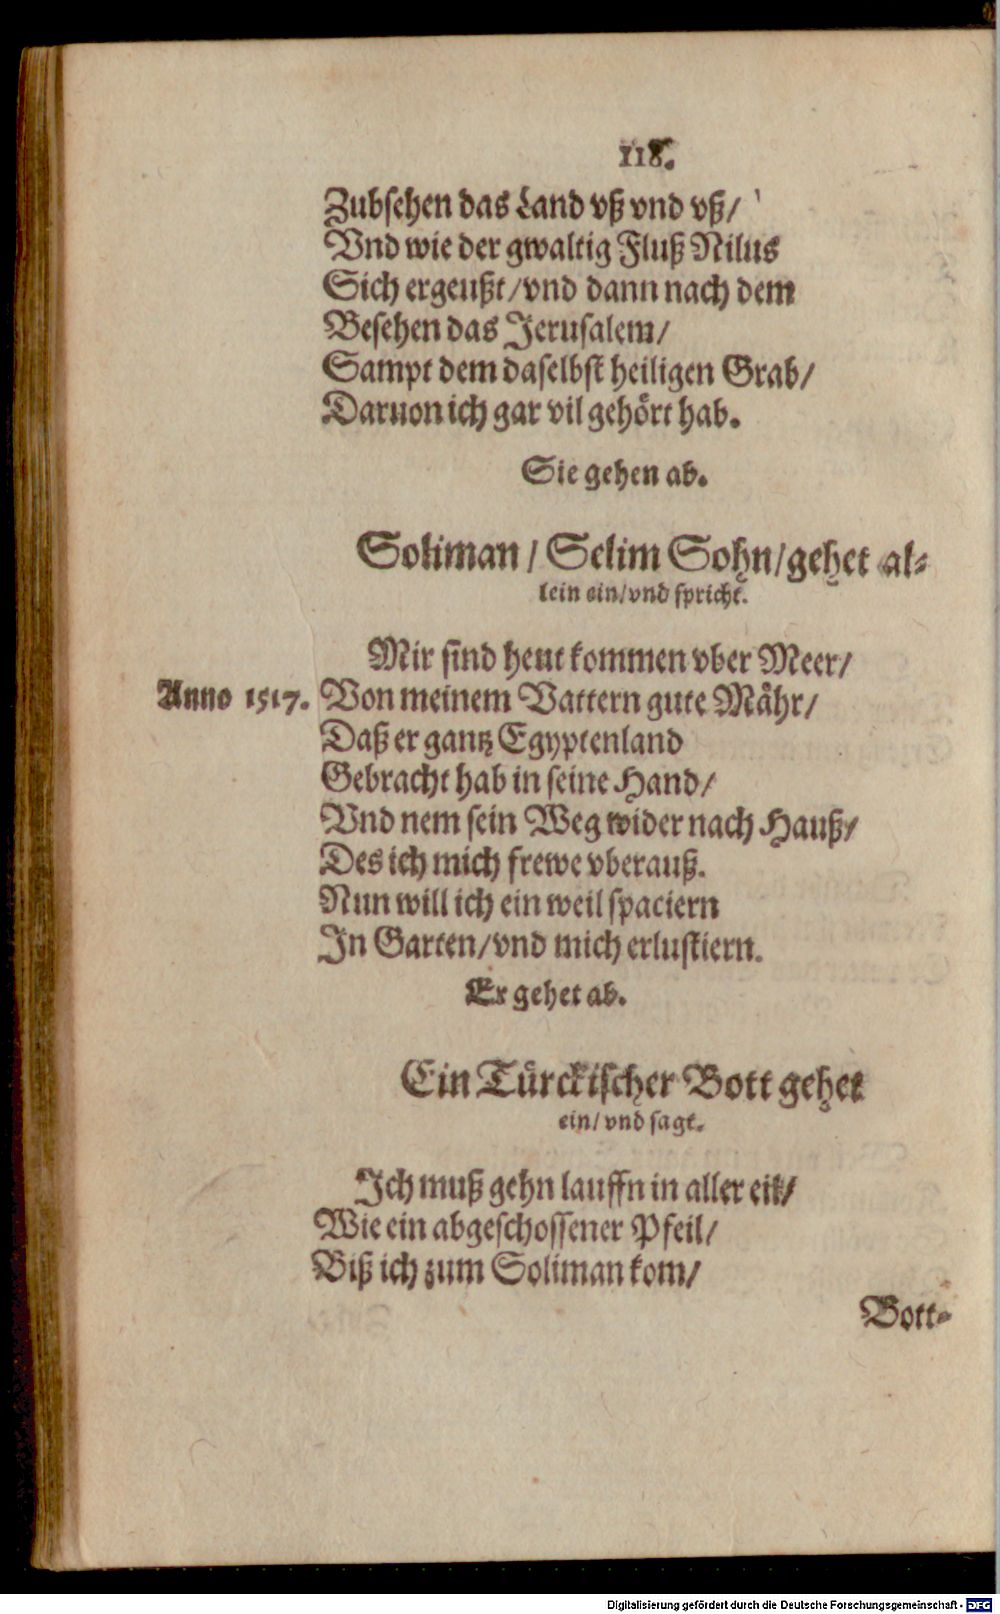 118.
Zubsehen das Land vß vnd vß/
Vnd wie der gwaltig Fluß Nilus
Sich ergeußt/vnd dann nach dem
Besehen das Jerusalem/
Sampt dem daselbst heiligen Grab/
Daruon ich gar vil gehört hab.
Sie gehen ab.
Soliman / Selim Sohn/gehet al-
lein ein/vnd spricht.
Mir sind heut kommen vber Meer/
Anno 1517. Von meinem Vattern gute Mähr/
Daß er gantz Egyptenland
Gebracht hab in seine Hand/
Vnd nem sein Weg wider nach Hauß/
Des ich mich frewe vberauß.
Nun will ich ein weil spaciern
In Garten/vnd mich erlustiern.
Er gehet ab.
Ein Türckischer Bott gehet
ein/vnd sagt.
Ich muß gehn lauffn in aller eil/
Wie ein abgeschossener Pfeil/
Biß ich zum Soliman kom/
Bott-
Digitalisierung gefördert durch die Deutsche Forschungsgemeinschaft - DFG